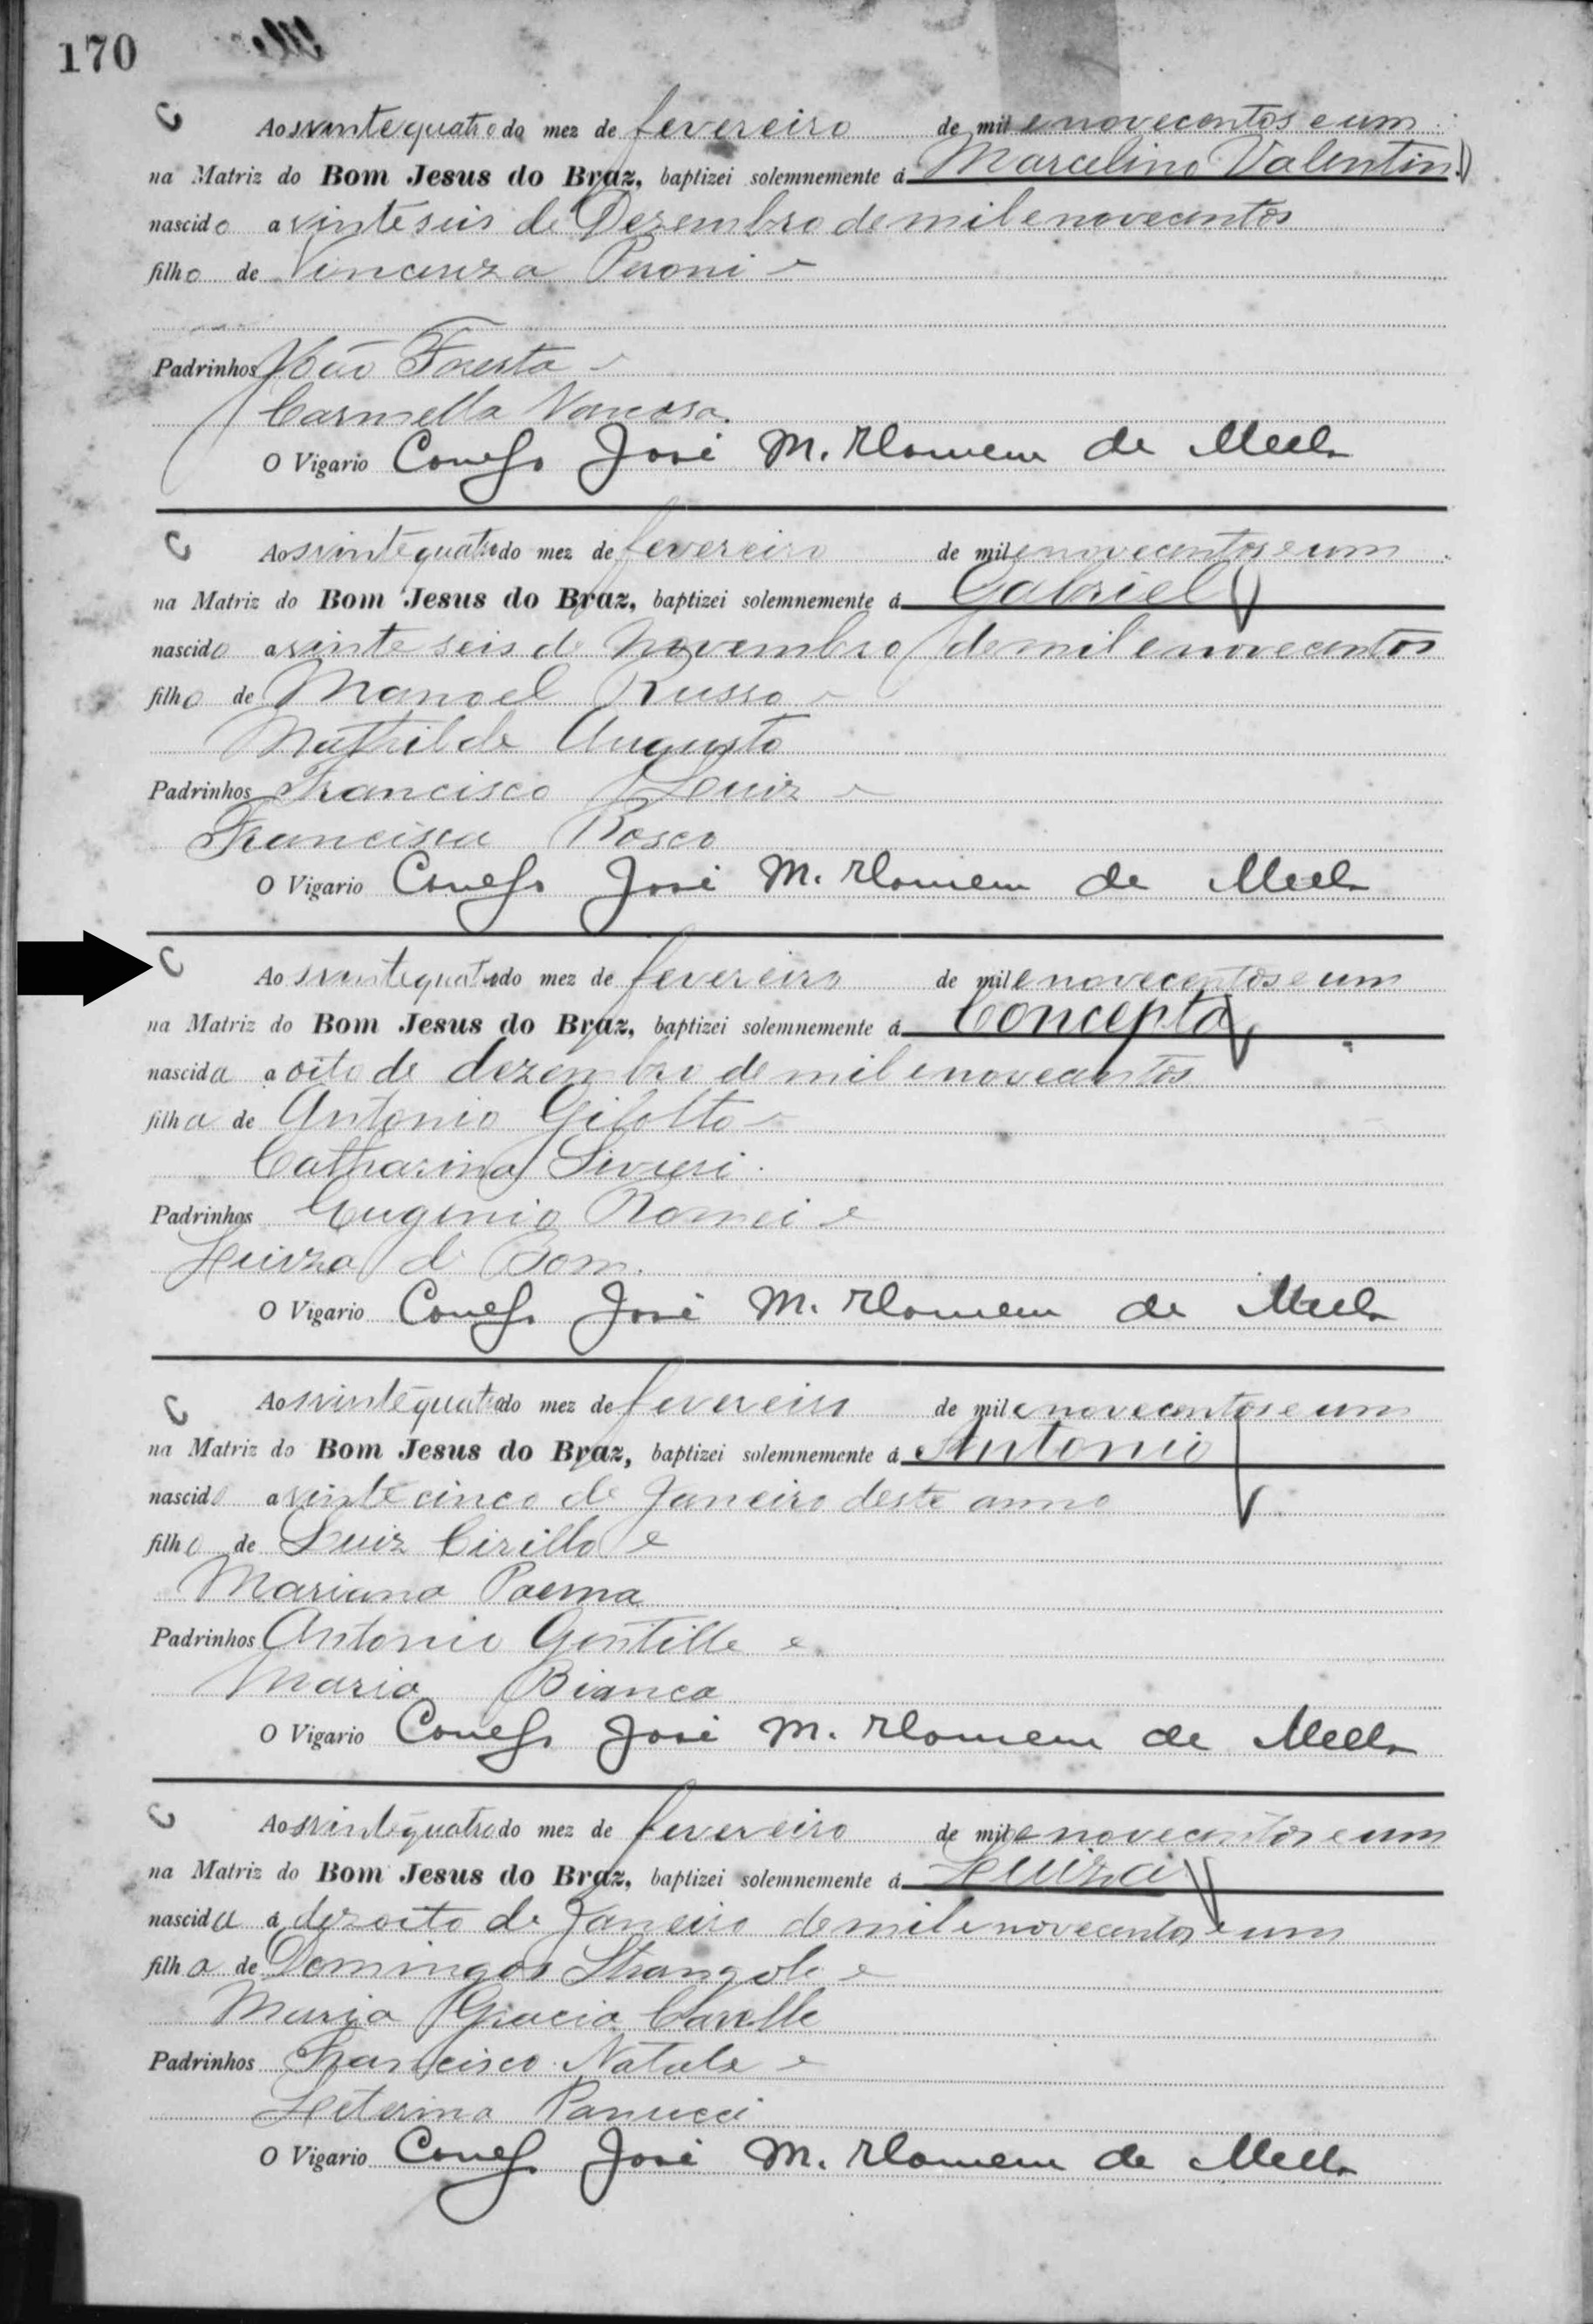 170
C
Aos vinte quatro do mez de fevereiro de mil e novecentos e um
na Matriz do Bom Jesus do Braz, baptizei solemnemente á Marcelino Valentin
nascido a vinte seis de Dezembro de mil e novecentos
filho de Vincenza Peroni e
Padrinhos João Foresta e
Carmella
O Vigario Conego José M. Homem de Mello
C
Aos vinte quatro do mez de fevereiro de mil e novecentos e um
na Matriz do Bom Jesus do Braz, baptizei solemnemente á Gabriel
nascido a vinte seis de Novembro de mil e novecentos
filho de Manoel Russo e
Mathilde Augusto
Padrinhos Francisco Luiz e
Francisca Rosco
O Vigario Conego José M. Homem de Mello
C
Aos vinte quatro do mez de fevereiro de mil e novecentos e um
na Matriz do Bom Jesus do Braz, baptizei solemnemente á Concepta
nascida a oito de dezembro de mil e novecentos
filha de Antonio Gifolto e
Catharina
Padrinhos Eugenio Romei e
Luiza de Bom.
O Vigario Conego José M. Homem de Mello
C
Aos vinte quatro do mez de fevereiro de mil e novecentos e um
na Matriz do Bom Jesus do Braz, baptizei solemnemente á Antonio
nascido a vinte cinco de Janeiro deste anno
filho de Luiz Cirillo e
Mariana Paema
Padrinhos Antonio Gentille e
Maria Bianca
O Vigario Conego José M. Homem de Mello
C
Aos vinte quatro do mez de fevereiro de mil e novecentos e um
na Matriz do Bom Jesus do Braz, baptizei solemnemente á Luiza
nascida á dezoito de Janeiro de mil e novecentos e um
filha de Domingos e
Maria Gracia
Padrinhos Francisco Natale e
Panucci
O Vigario Conego José M. Homem de Mello